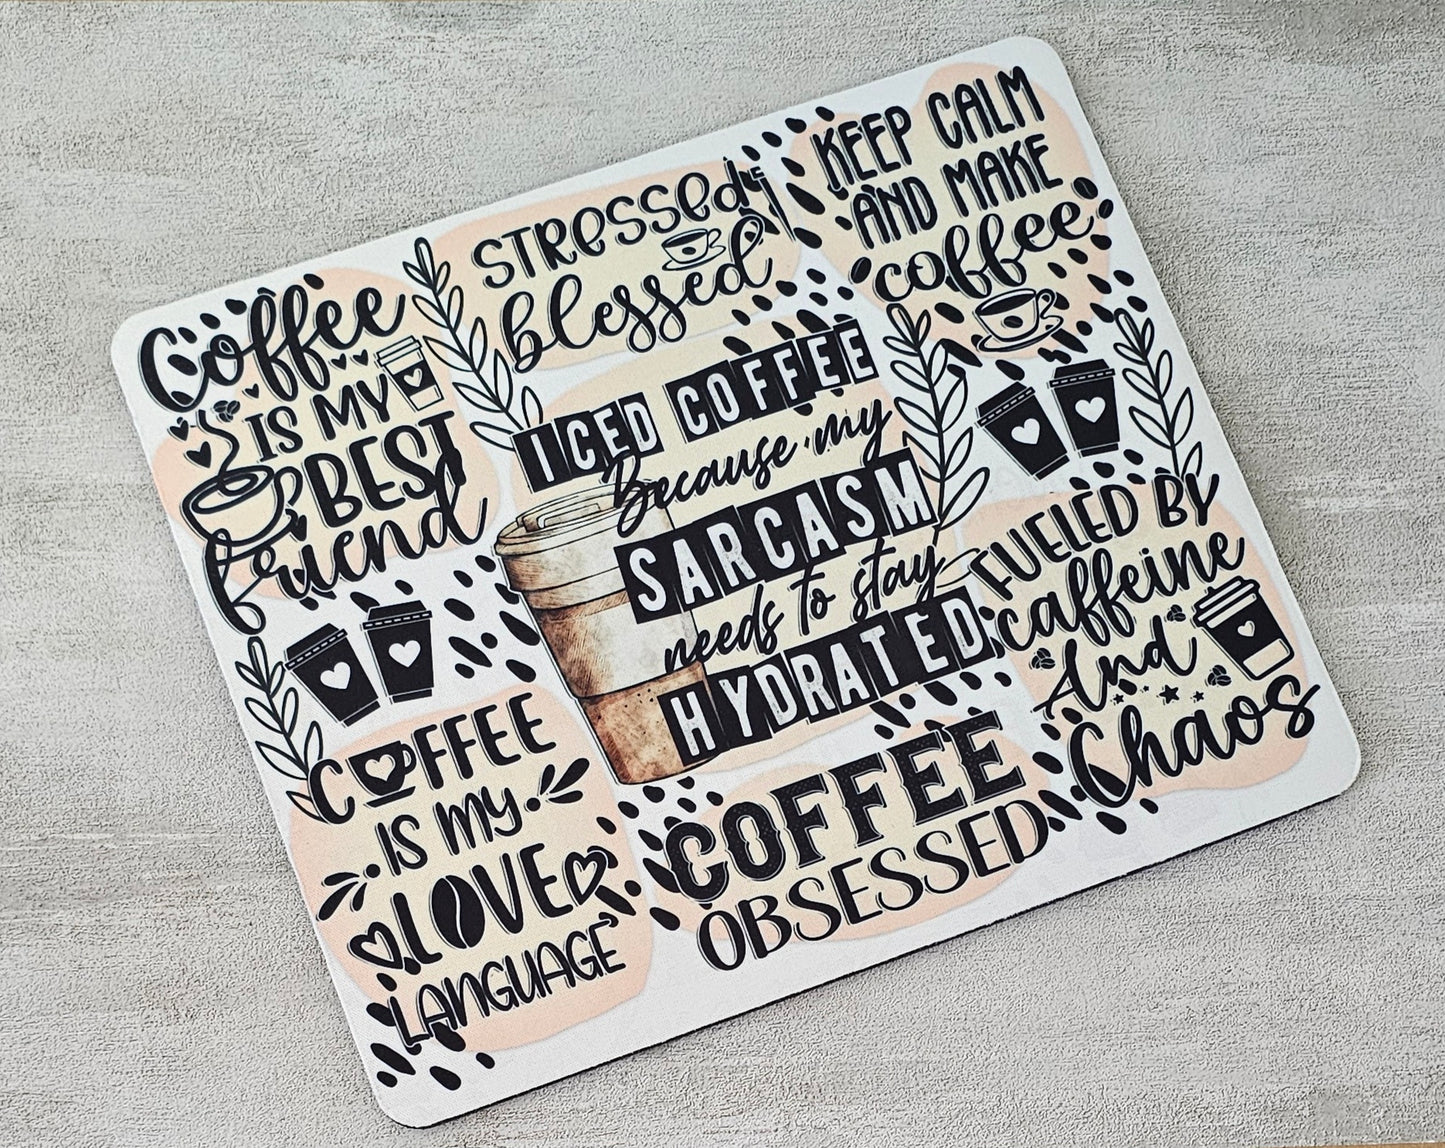 Coffee
IS MY
BEST
friend
STRESSED
blessed
KEEP CALM
AND MAKE
coffee
ICED COFFEE
Because my
SARCASM
needs to stay
HYDRATED
FUELED BY
caffeine
And
Chaos
COFFEE
IS MY
LOVE
LANGUAGE
COFFEE
OBSESSED